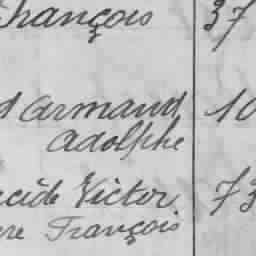 François 37
d Armand 10
Adolphe
acide Victor 73
re François